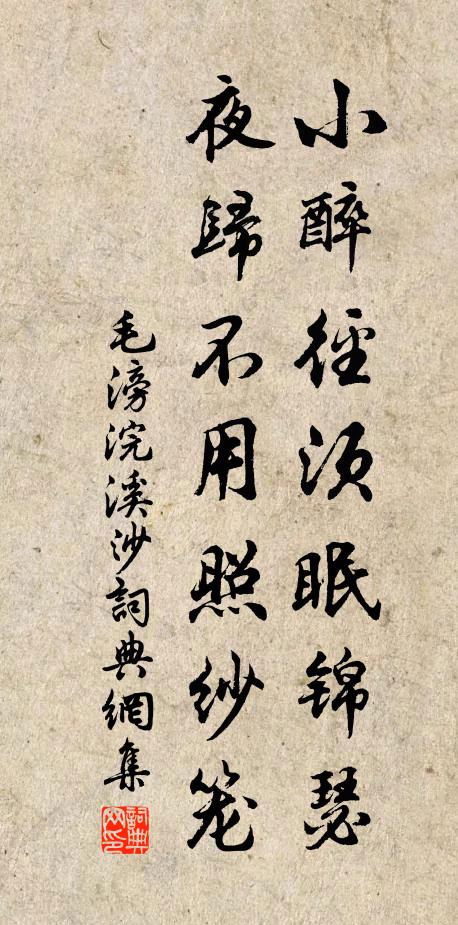 小醉徑須眠锦瑟
夜歸不用照紗笼
毛滂浣溪沙詞典網集
詞典网印